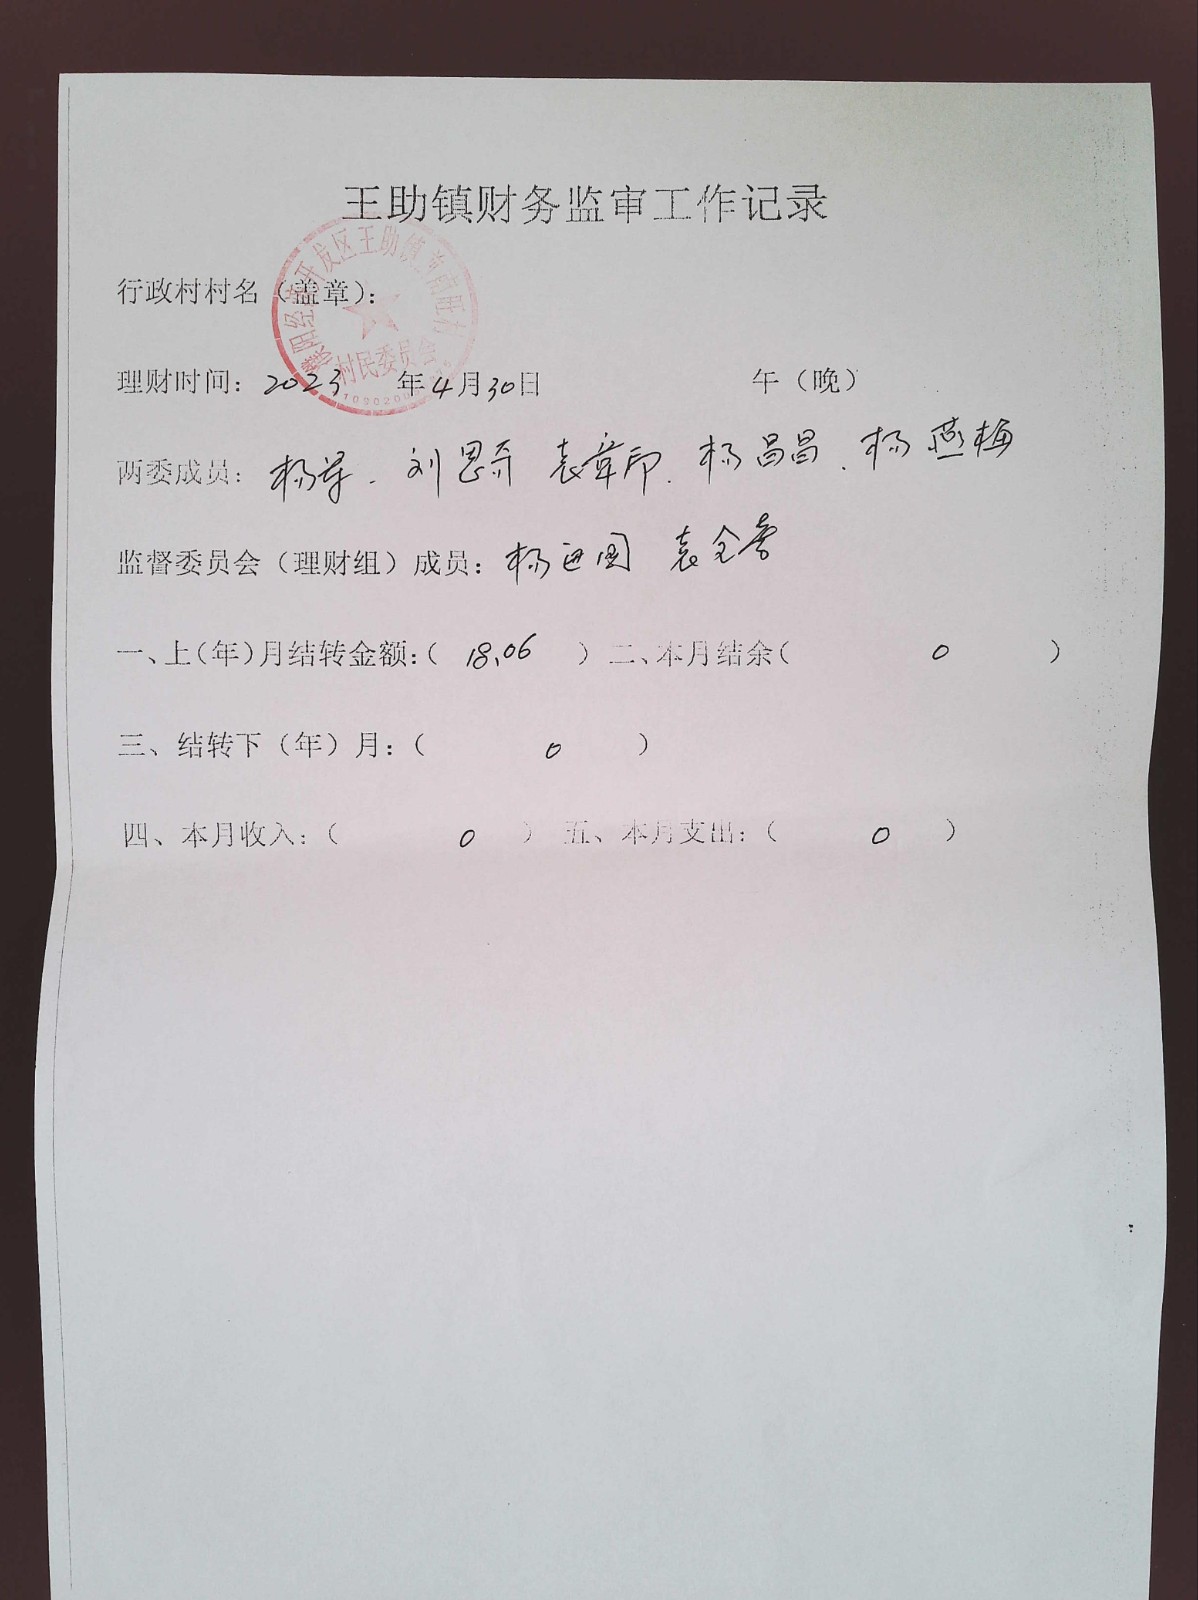 王助镇财务监审工作记录
行政村村名（盖章）：
村民委员会
理财时间：2023 年4月30日 午（晚）
两委成员：杨 . 刘思 袁章印. 杨昌昌. 杨燕梅
监督委员会（理财组）成员：杨 国 袁全
一、上（年）月结转金额：（ 18.06 ）二、本月结余（ 0 ）
三、结转下（年）月：（ 0 ）
四、本月收入：（ 0 ） 五、本月支出：（ 0 ）